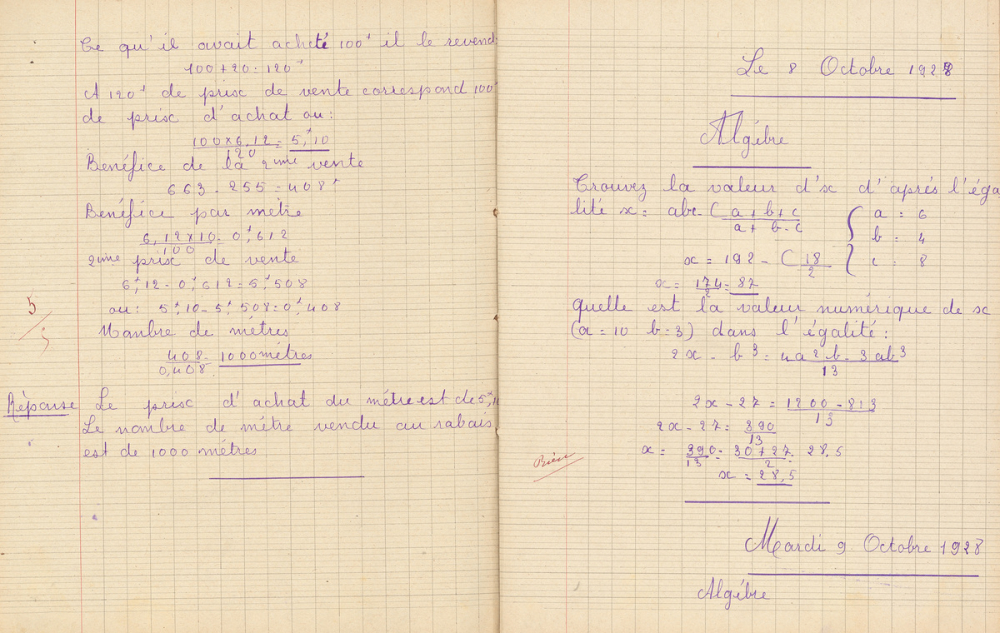 Ce qu'il avait acheté 100f il le revend
100+20=120f
A 120f de prix de vente correspond 100f
de prix d'achat ou:
100×6,12 = 5,f10
120
Benéfice de la 2ème vente
663-255=408f
Benéfice par mètre
6,12×10=0,f612
100
2ème prix de vente
6,f12-0,f612=5,f508
ou: 5,f10-5,f508=0,f408
Nombre de mètres
408 = 1000 mètres
0,408
Réponse Le prix d'achat du mètre est de 5,f1
Le nombre de mètre vendu au rabais
est de 1000 mètres
5
5
Le 8 Octobre 1928
Algébre
Trouvez la valeur d'x d'aprés l'éga
lité x = abc-(a+b+c
a+b-c
a = 6
b = 4
c = 8
x = 192-(18
2
x = 174=87
2
quelle est la valeur numérique de x
(a=10 b=3) dans l'égalité:
2x-b³=4a²b-3ab³
13
2x-27=1200-813
13
2x-27=390
13
x = 390=30+27=28,5
13 2
x = 28,5
Bien
Mardi 9 Octobre 1928
Algébre